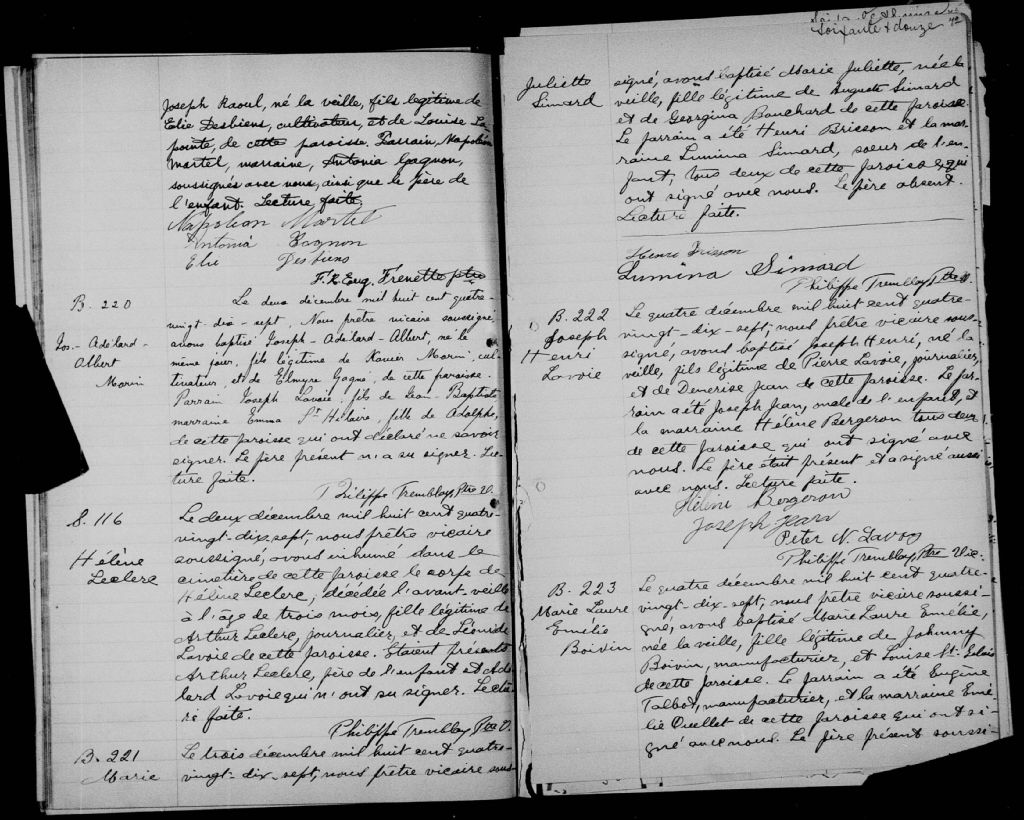 Joseph Raoul, né la veille, fils légitime de
Elie Desbiens, cultivateur, et de Louise La-
pointe, de cette paroisse. Parrain, Napoléon
Martel, marraine, Antonia Gagnon,
soussignés avec nous, ainsi que le père de
l'enfant. Lecture faite.
Napoléon Martel
Antonia Gagnon
Elie Desbiens
F. X. Eug. Frenette ptre
B. 220
Jos. - Adélard -
Albert
Morin
Le deux décembre mil huit cent quatre-
vingt-dix-sept, Nous prêtre vicaire soussigné,
avons baptisé Joseph-Adélard-Albert, né le
même jour, fils légitime de Xavier Morin, cul-
tivateur, et de Elmyre Gagné, de cette paroisse.
Parrain Joseph Lavoie, fils de Jean-Baptiste,
marraine Emma St Hilaire, fille de Adolphe,
de cette paroisse qui ont déclaré ne savoir
signer. Le père présent n'a su signer. Lec-
ture faite.
Philippe Tremblay, Ptre V.
S. 116
Hélène
Leclerc
Le deux décembre mil huit cent quatre-
vingt-dix-sept, nous prêtre vicaire
soussigné, avons inhumé dans le
cimetière de cette paroisse le corps de
Hélène Leclerc, décédée l'avant-veille
à l'âge de trois mois, fille légitime de
Arthur Leclerc, journalier, et de Léonide
Lavoie de cette paroisse. Étaient présents
Arthur Leclerc, père de l'enfant et Adé-
lard Lavoie qui n'ont su signer. Lectu-
re faite.
Philippe Tremblay Ptre V.
B. 221
Marie
Le trois décembre mil huit cent quatre-
vingt-dix-sept, nous prêtre vicaire sous-
soixante & douze 72
Juliette
Simard
signé, avons baptisé Marie Juliette, née la
veille, fille légitime de Auguste Simard
et de Georgina Bouchard de cette paroisse.
Le parrain a été Henri Brisson et la mar-
raine Lumina Simard, soeur de l'en-
fant, tous deux de cette paroisse qui
ont signé avec nous. Le père absent.
Lecture faite.
Henri Brisson
Lumina Simard
Philippe Tremblay, Ptre V.
B. 222
Joseph
Henri
Lavoie
Le quatre décembre mil huit cent quatre-
vingt-dix-sept, nous prêtre vicaire sous-
signé, avons baptisé Joseph Henri, né la
veille, fils légitime de Pierre Lavoie, journalier,
et de Démerise Jean de cette paroisse. Le par-
rain a été Joseph Jean, oncle de l'enfant, et
la marraine Hélène Bergeron tous deux
de cette paroisse qui ont signé avec
nous. Le père était présent et a signé aussi
avec nous. Lecture faite.
Hélène Bergeron
Joseph Jean
Peter N. Lavoy
Philippe Tremblay, Ptre Vic.
B. 223
Marie Laure
Emélie
Boivin
Le quatre décembre mil huit cent quatre-
vingt-dix-sept, nous prêtre vicaire soussi-
gné, avons baptisé Marie Laure Emélie,
née la veille, fille légitime de Johnny
Boivin, manufacturier, et Louise St. Gelais
de cette paroisse. Le parrain a été Eugène
Talbot, manufacturier, et la marraine Emé-
lie Ouellet de cette paroisse qui ont si-
gné avec nous. Le père présent soussi-